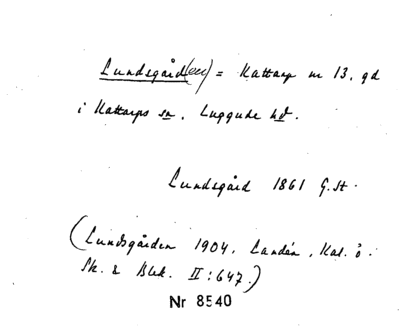 Lundsgård(en) = Kattarp nr 13, gd
i Kattarps sn, Luggude hd.
Lundsgård 1861 G.St.
(Lundsgården 1904, Landén, Kat. ö.
Sk. & Blek. II:647.)
Nr 8540